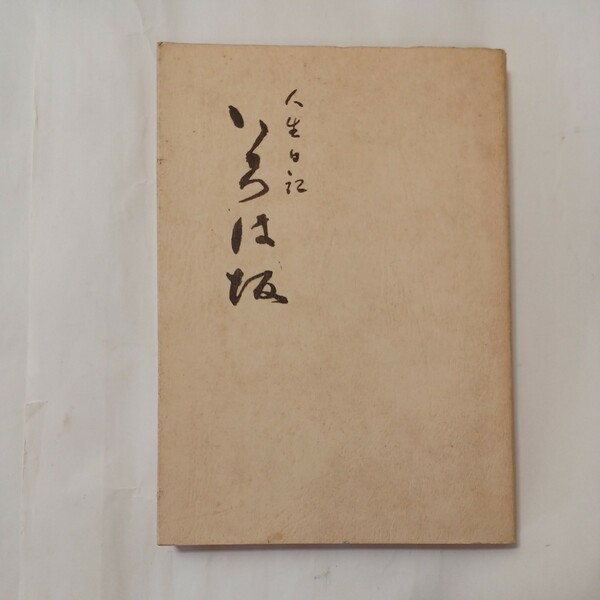 人生日記
いろは坂